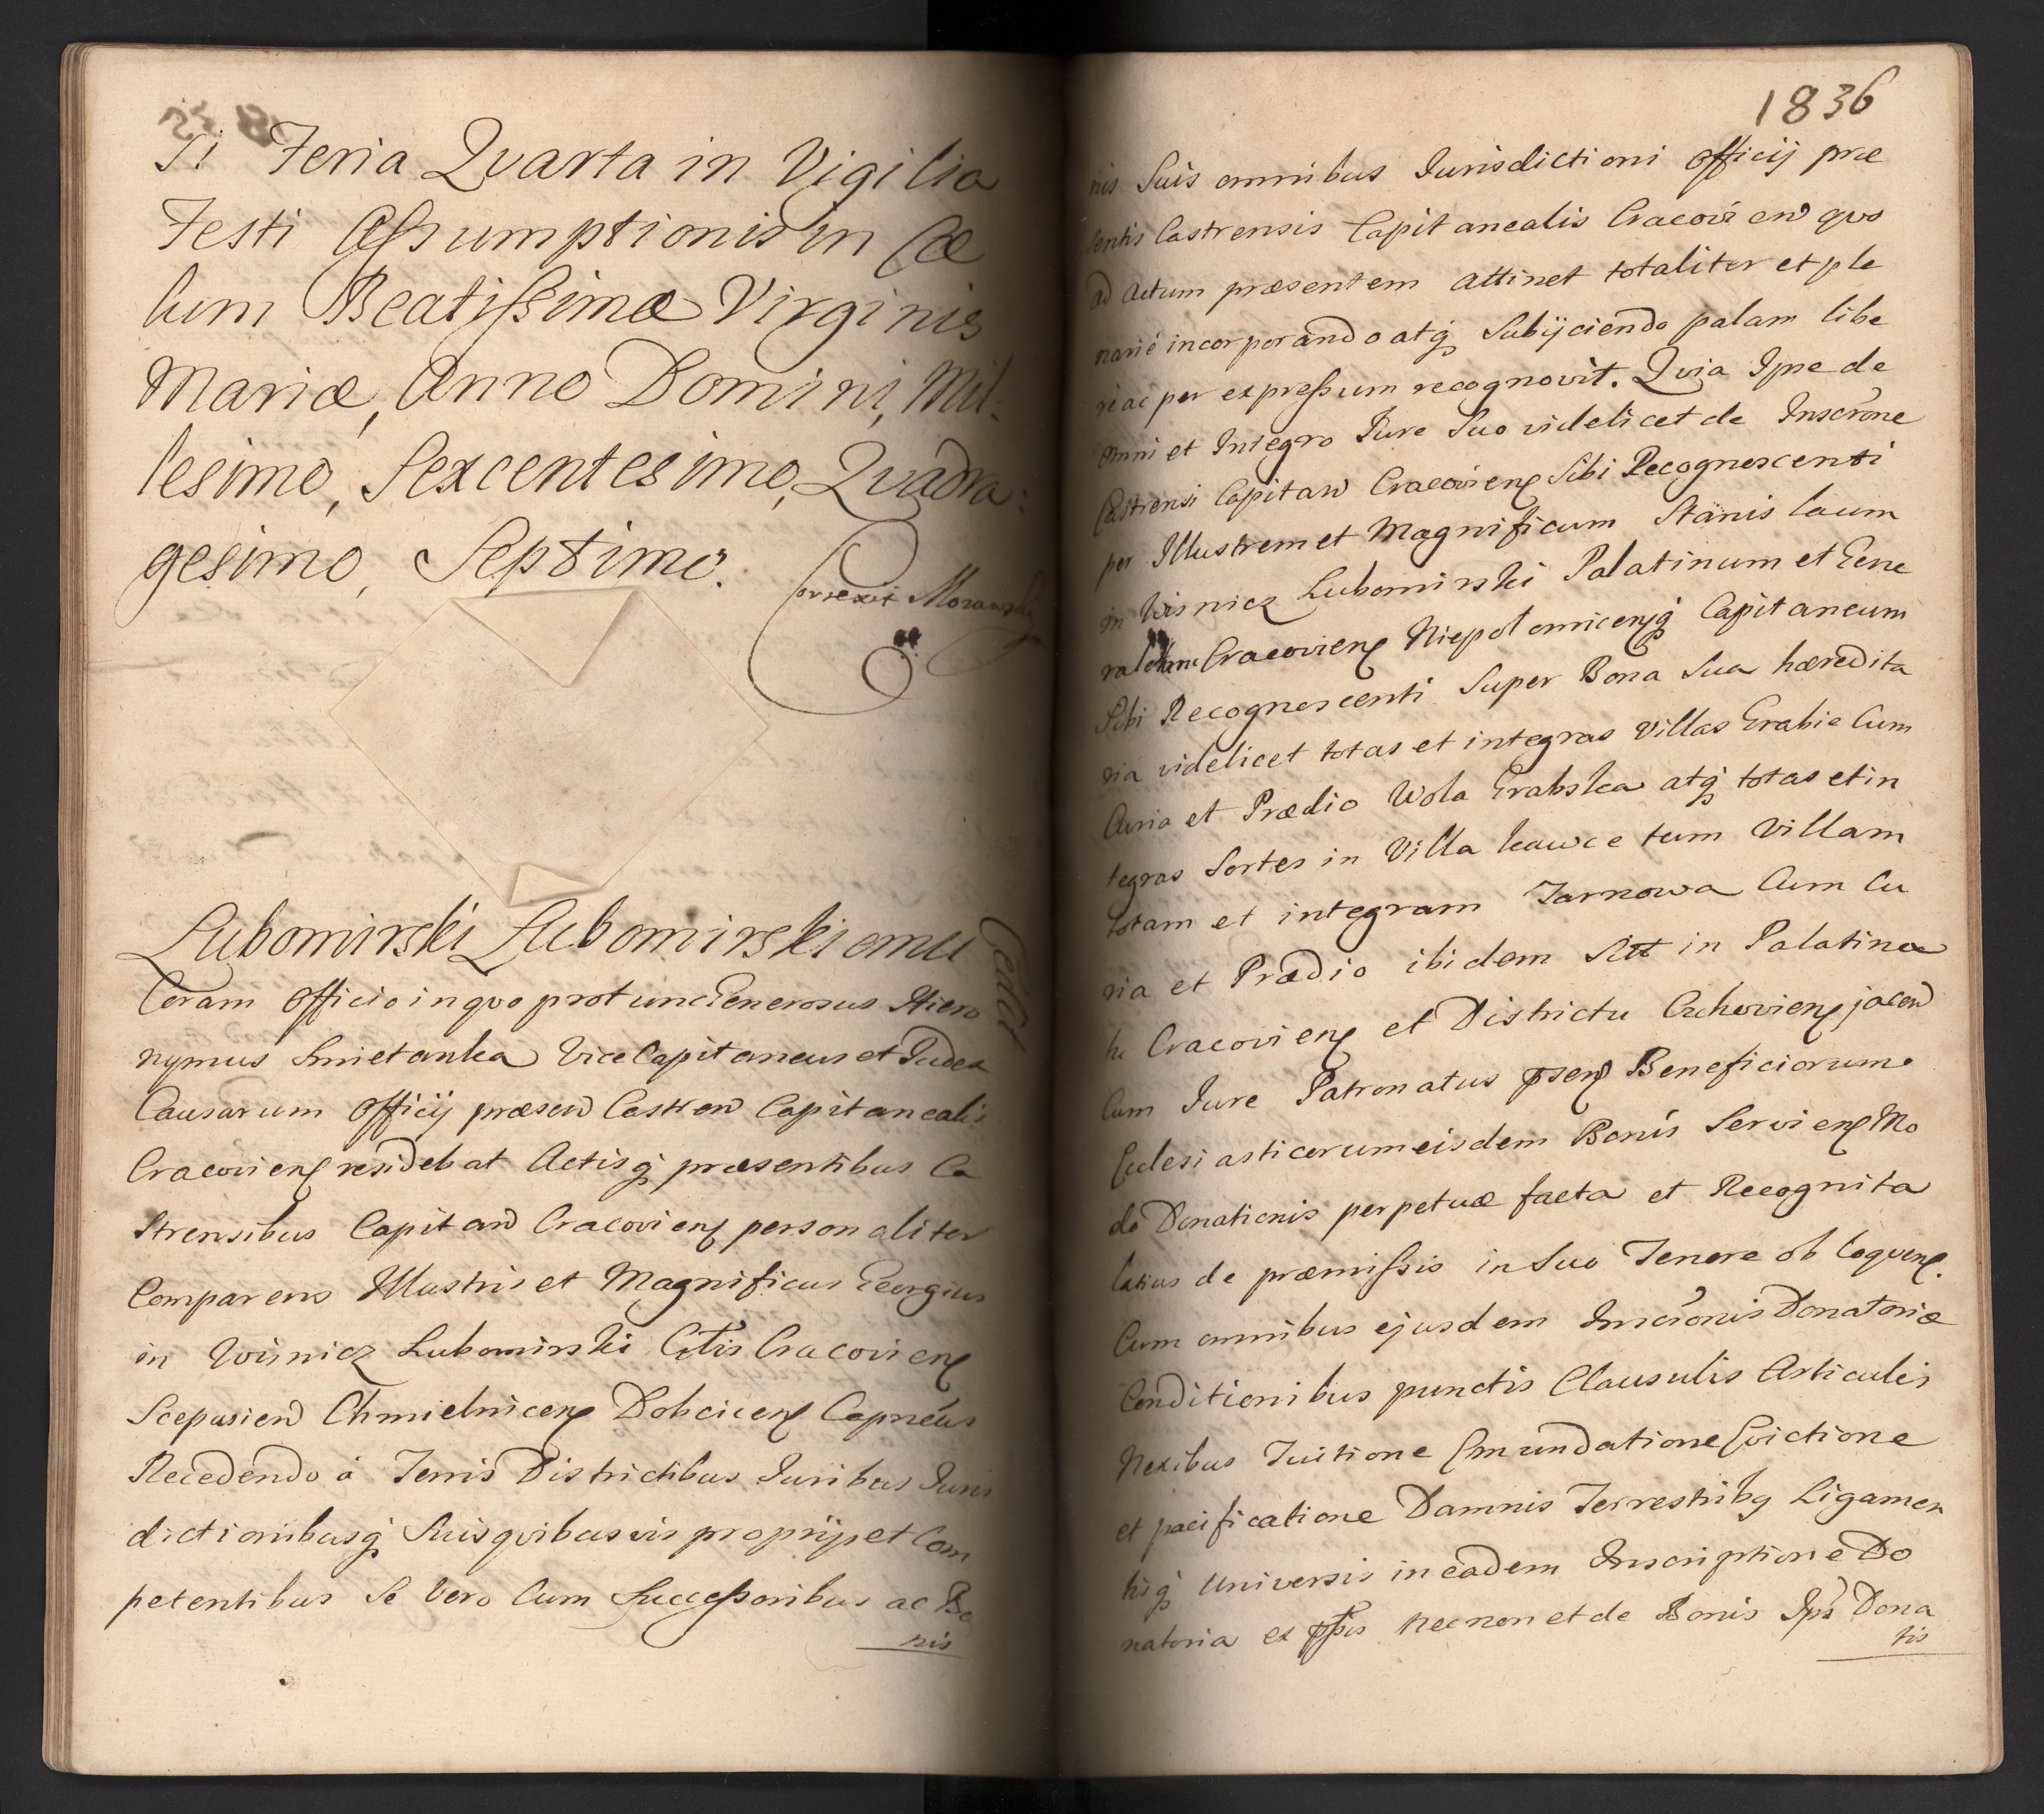 Feria Qvarta in Vigilia
Festi Assumptionis in Cæ
lum Beatissimæ Virginis
Mariæ, Anno Domini, Mil-
lesimo, Sexcentesimo, Qvadra:
gesimo, Septimo.
Correxit
Lubomirski Lubomirskiemu
Cedit
Coram Officio in qvo pro tunc Generosus Hiero
nymus Smietanka ViceCapitaneus et Judex
Causarum Officij præsen Castren Capitanealis
Cracovien residebat Actisq præsentibus Ca
strensibus Capitan Cracovien personaliter
Comparens Illustris et Magnificus Georgius
in Wisnicz Lubomirski Cttis Cracovien
Scepusien Chmielnicen Dobcicen Capnéus
Recedendo á Terris Districtibus Juribus Juris
dictionibusq Suis qvibusvis proprijs et Com
petentibus Se Vero Cum Successoribus ac Bo
nis
1836
nis Suis omnibus Jurisdictioni Officij præ
sentis Castrensis Capitanealis Cracovien qvo
ad Actum præsentem attinet totaliter et ple
narié incorporando atq Subijciendo palam libe
re ac per expressum recognovit. Qvia Ipse de
omni et Integro Jure Suo videlicet de Inscrone
Castrensi Capitan Cracovien Sibi Recognoscenti
per Illustrem et Magnificum Stanislaum
in Wisnicz Lubomirski Palatinum et Gene
ralem Cracovien Niepolomicenq Capitaneum
Sibi Recognoscenti Super Bona Sua hæredita
ria videlicet totas et integras Villas Grabie Cum
Curia et Prædio Wola Grabska atq totas et in
tegras Sortes in Villa kawce tum Villam
totam et integram Tarnowa Cum Cu
ria et Prædio ibidem in Palatina
tu Cracovien et Districtu Czchovien jacen
Cum Jure Patronatus Beneficiorum
Ecclesiasticorum eisdem Bonis Servien Mo
do Donationis perpetuæ facta et Recognita
latius de præmissis in Suo Tenore obloquen.
Cum omnibus ejusdem Inscronis Donatoriæ
Conditionibus punctis Clausulis Articulis
Nexibus Tuitione Emundatione Evictione
et pacificatione Damnis Terrestribq Ligamen
tisq Universis in eadem Inscriptione Do
natoria ex necnon et de Bonis Ips Dona
tis